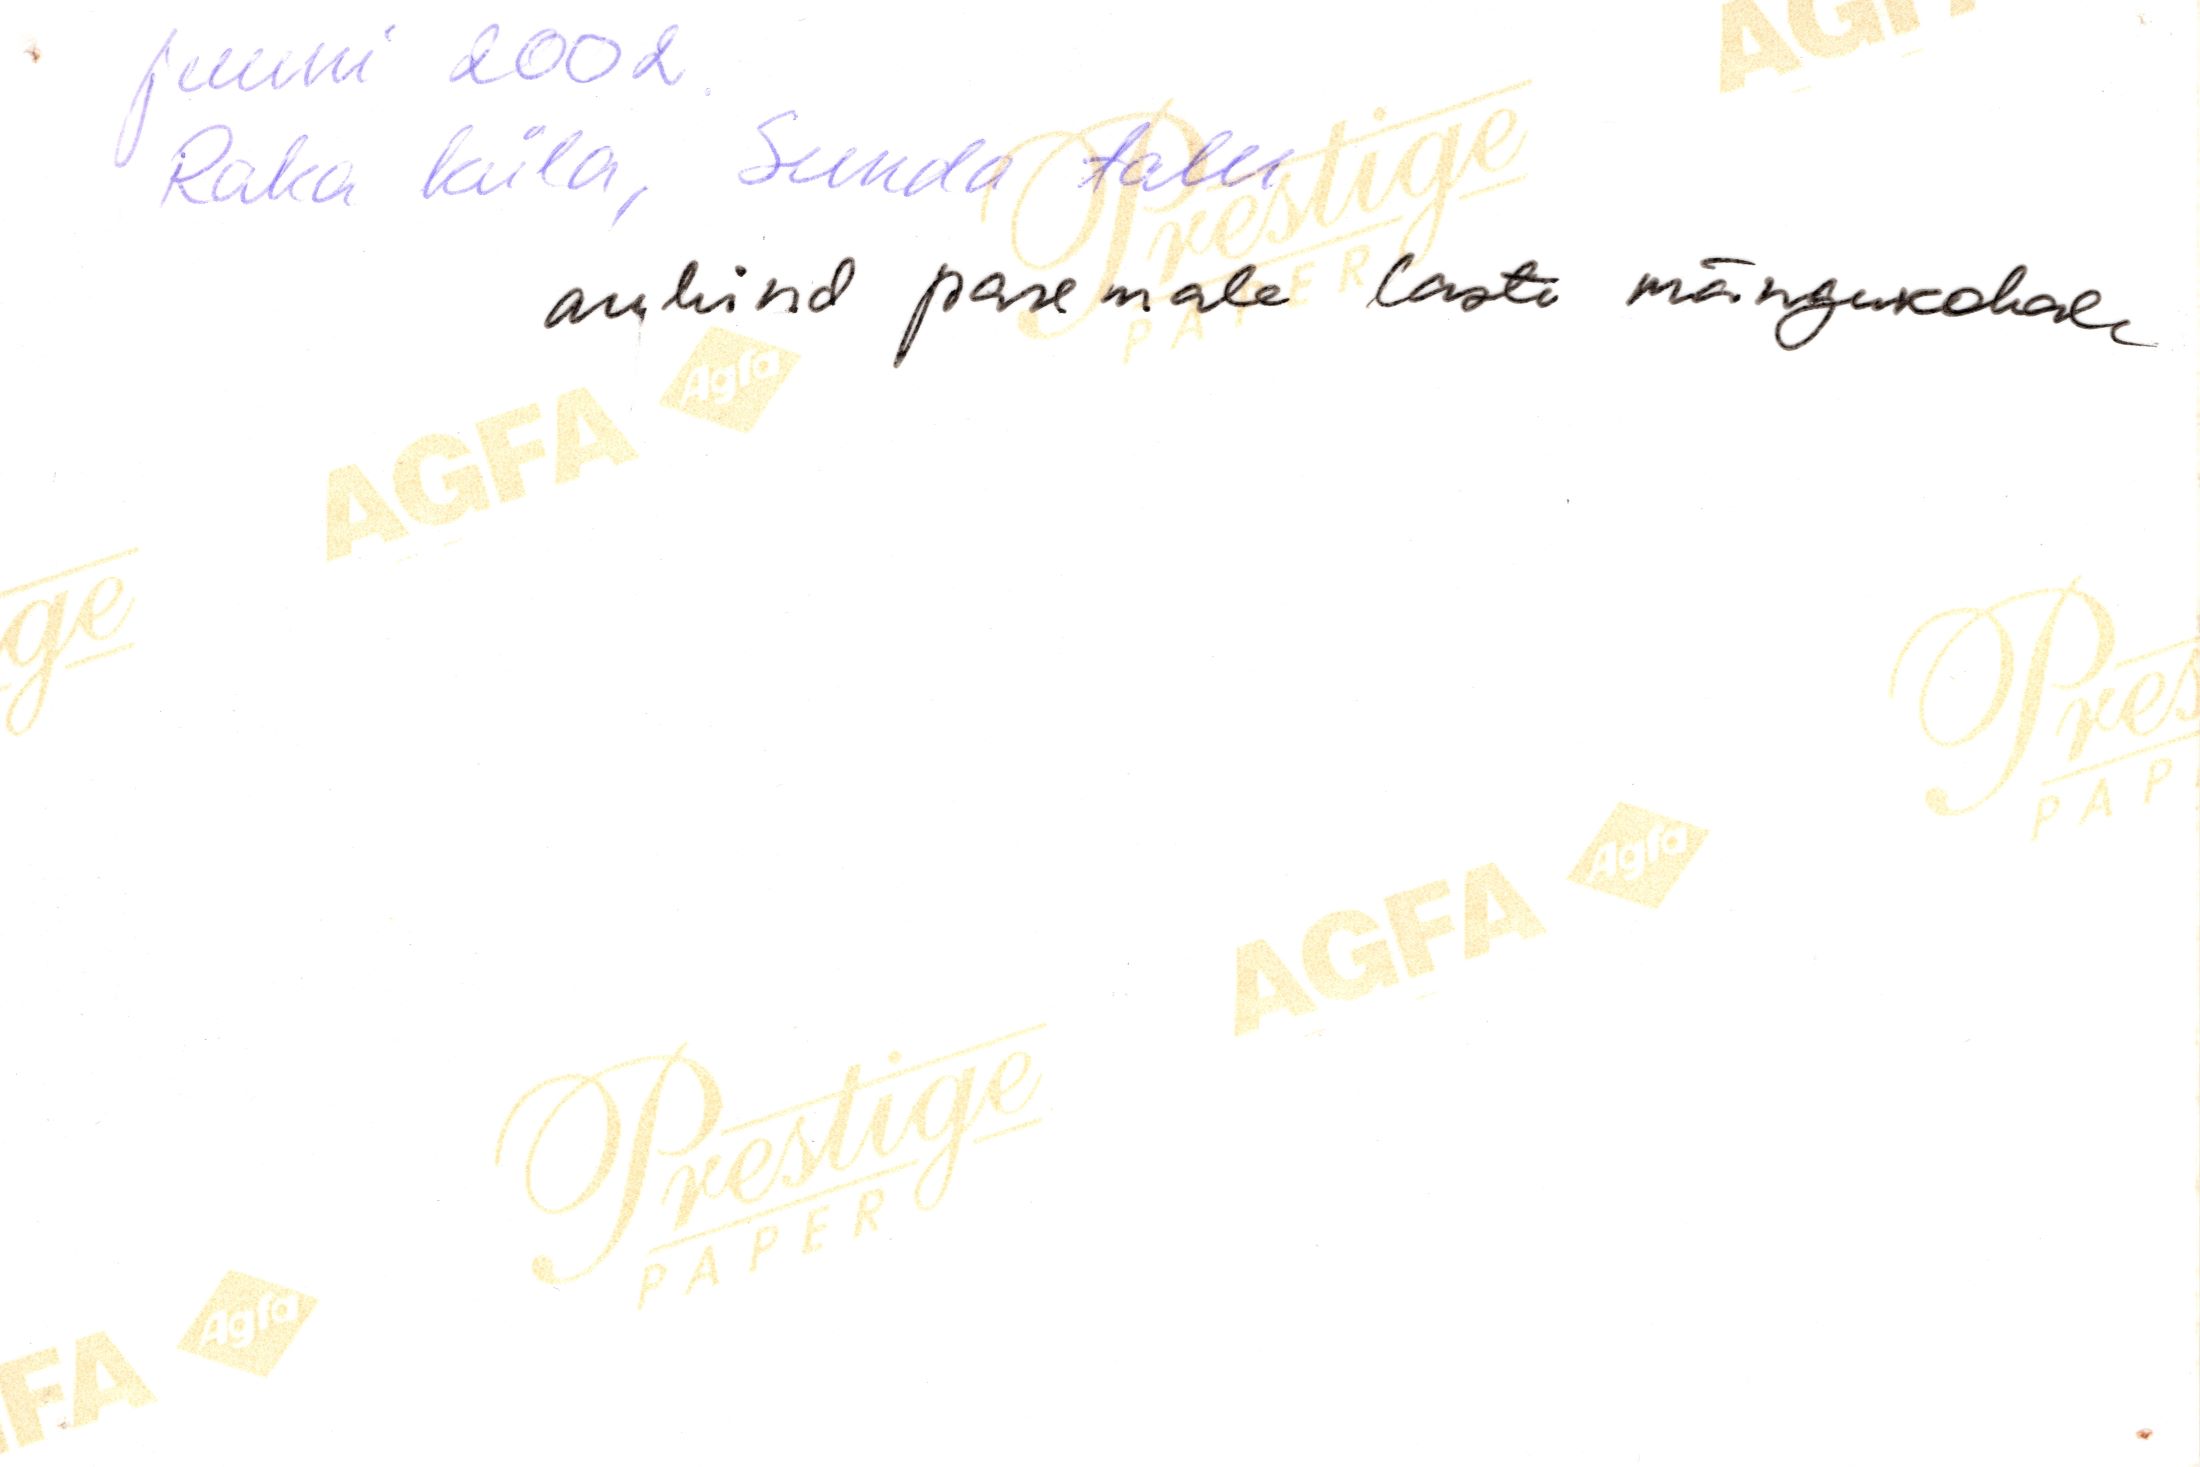 juuni 2002.
Raka küla, Sunda talu
auhind paremale laste mängukohale
AGFA
Prestige
PAPER
AGFA Agfa
ge
Prestige
PAPER
AGFA Agfa
Prestige
PAPER
AGFA Agfa